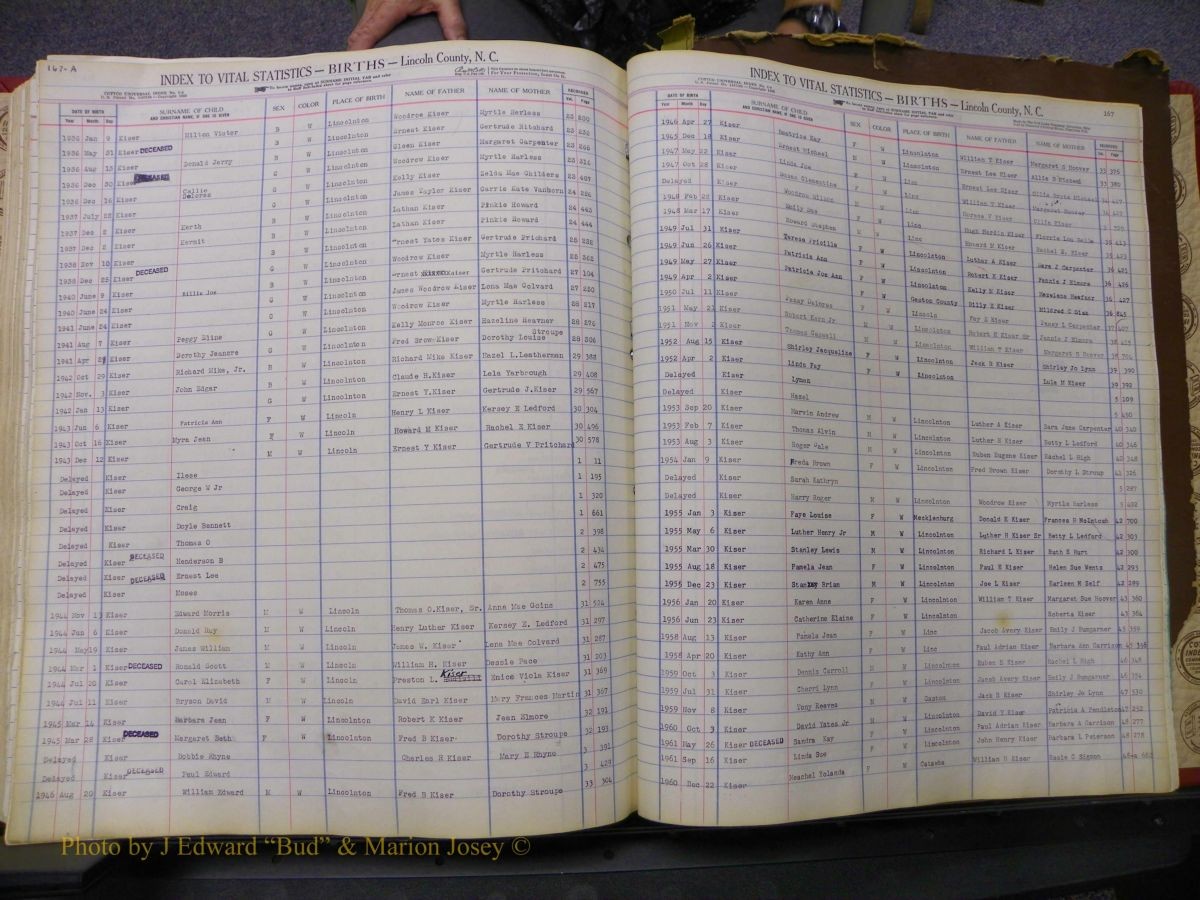 167-A
INDEX TO VITAL STATISTICS — BIRTHS — Lincoln County, N. C.
DATE OF BIRTH SURNAME OF CHILD SEX COLOR PLACE OF BIRTH NAME OF FATHER NAME OF MOTHER RECORDED
Year Month Day AND CHRISTIAN NAME, IF ONE IS GIVEN Vol. Page
1936 Jan 9 Kiser Hilton Victor B W Lincolnton Woodrow Kiser Myrtle Harless
1936 May 31 Kiser DECEASED Ernest Kiser Gertrude Ritchard
1936 Aug 13 Kiser Donald Jerry Glenn Kiser Margaret Carpenter
1936 Dec 30 Kiser Woodrow Kiser Myrtle Harless
1936 Dec 16 Kiser Callie Delores Kelly Kiser Zelda Mae Childers
1937 July 22 Kiser James Taylor Kiser Carrie Kate Vanhorn
1937 Dec 2 Kiser Kerth Lathan Kiser Pinkie Howard 24 443
1937 Dec 2 Kiser Kermit Lathan Kiser Pinkie Howard 24 444
1938 Nov 10 Kiser Ernest Yates Kiser Gertrude Prichard
1938 Dec 25 Kiser DECEASED Woodrow Kiser Myrtle Harless
1940 June 9 Kiser Billie Joe Gertrude Pritchard 27 104
1940 June 24 Kiser James Woodrow Kiser Lona Mae Colvard
1941 June 24 Kiser Woodrow Kiser Myrtle Harless 28 217
1941 Aug 7 Kiser Peggy Eline Kelly Monroe Kiser Hazeline Heavner
1941 Apr Kiser Dorothy Jeanere Fred Brow Kiser Dorothy Louise Stroupe 28 306
1942 Oct 29 Kiser Richard Mike, Jr. Richard Mike Kiser Hazel L. Leatherman 29 388
1942 Nov. 3 Kiser John Edgar B Lincolnton Claude H. Kiser Lela Yarbough 29 408
1942 Jan 13 Kiser G W Lincolnton Ernest Y. Kiser Gertrude J. Kiser 29 567
1943 Jun 6 Kiser Patricia Ann F W Lincoln Henry L Kiser Kersey E Ledford 30 304
1943 Oct 16 Kiser Myra Jean F W Lincoln Howard M Kiser Rachel E Kiser 30 496
1943 Dec 12 Kiser M W Lincoln Ernest Y Kiser Gertrude V Pritchard 30 578
Delayed Kiser Ilese 1 11
Delayed Kiser George W Jr 1 195
Delayed Kiser Craig 1 320
Delayed Kiser Doyle Bennett 1 661
Delayed Kiser Thomas O 2 398
Delayed Kiser DECEASED Henderson B 2 434
Delayed Kiser DECEASED Ernest Lee 2 475
Delayed Kiser Moses 2 755
1944 Nov 13 Kiser Edward Morris M W Lincoln Thomas O. Kiser, Sr. Anna Mae Goins 31 524
1944 Jun 6 Kiser Donald Ray M W Lincoln Henry Luther Kiser Kersey E. Ledford 31 297
1944 May 19 Kiser James William M W Lincoln James W. Kiser Lona Mae Colvard 31 287
1944 Mar 1 Kiser DECEASED Ronald Scott M W Lincoln William H. Kiser Dessie Pace 31 203
1944 Jul 20 Kiser Carol Elizabeth F W Lincoln Preston L. Kiser Enice Viola Kiser 31 369
1944 Jul 11 Kiser Bryson David M W Lincoln David Earl Kiser Mary Frances Martin 31 367
1945 Mar 14 Kiser Barbara Jean F W Lincolnton Robert K Kiser Jean Elmore 32 191
1945 Mar 28 Kiser DECEASED Margaret Beth F W Lincolnton Fred B Kiser Dorothy Stroupe 32 193
Delayed Kiser Bobbie Rhyne Charles H Kiser Mary E Rhyne 3 391
Delayed Kiser DECEASED Paul Edward 3 429
1946 Aug 20 Kiser William Edward M W Lincolnton Fred B Kiser Dorothy Stroupe 33 304
INDEX TO VITAL STATISTICS — BIRTHS — Lincoln County, N. C. 167
DATE OF BIRTH SURNAME OF CHILD SEX COLOR PLACE OF BIRTH NAME OF FATHER NAME OF MOTHER RECORDED
Year Month Day AND CHRISTIAN NAME, IF ONE IS GIVEN Vol. Page
1946 Apr 27 Kiser Beatrice Kay F W Lincolnton William T Kiser Margaret S Hoover 33 375
1945 Dec 18 Kiser Ernest Michael Lincolnton Ernest Lee Kiser 33 380
1947 May 22 Kiser Linda Joe Linc Ernest Lee Kiser
1947 Oct 28 Kiser Susan Clementine Linc William T Kiser Margaret Hoover
Delayed Kiser Woodrow Wilson Horace V Kiser
1948 Feb 22 Kiser Emily Sue Linc Hugh Hardin Kiser
1948 Mar 17 Kiser Howard Stephen Howard M Kiser Rachel E. Kiser
1949 Jul 31 Kiser Teresa Pricilla Lincolnton Luther A Kiser Sara J Carpenter 36 421
1949 Jun 26 Kiser Patricia Ann Lincolnton Robert K Kiser Fannie J Elmore 36 426
1949 May 27 Kiser Patricia Joe Ann Lincolnton Kelly M Kiser Hazelene Heafner 36 427
1949 Apr 2 Kiser Gaston County Billy E Kiser Mildred C Diez
1950 Jul 11 Kiser Penny Delores Lincoln Fay E Kiser Jenny L Carpenter 37 407
1951 May 21 Kiser Robert Kern Jr Lincolnton Robert K Kiser Sr Jennie J Elmore
1951 Nov 2 Kiser Thomas Carroll Lincolnton William T Kiser Margaret S Hoover
1952 Aug 15 Kiser Shirley Jacqueline F W Lincolnton Jack B Kiser Shirley Jo Lynn 39 390
1952 Apr 2 Kiser Linda Fay F W Lincolnton Lula M Kiser 39 392
Delayed Kiser Lyman 5 109
Delayed Kiser Hazel 5 450
1953 Sep 20 Kiser Marvin Andrew M W Lincolnton Luther A Kiser Sara Jane Carpenter 40 340
1953 Feb 7 Kiser Thomas Alvin M W Lincolnton Luther H Kiser Betty L Ledford 40 346
1953 Aug 3 Kiser Roger Dale M W Lincolnton Ruben Eugene Kiser Rachel L High 40 348
1954 Jan 9 Kiser Freda Brown F W Lincolnton Fred Brown Kiser Dorothy L Stroup 41 326
Delayed Kiser Sarah Kathryn 5 287
Delayed Kiser Harry Roger M W Lincolnton Woodrow Kiser Myrtle Harless 5 402
1955 Jan 3 Kiser Faye Louise F W Mecklenburg Donald K Kiser Frances H McIntosh 42 700
1955 May 6 Kiser Luther Henry Jr M W Lincolnton Luther H Kiser Sr Betty L Ledford 42 303
1955 Mar 30 Kiser Stanley Lewis M W Lincolnton Richard L Kiser Ruth E Hurt 42 300
1955 Aug 18 Kiser Pamela Jean F W Lincolnton Paul H Kiser Helen Sue Wentz 42 293
1955 Dec 23 Kiser Brian M W Lincolnton Joe L Kiser Karleen M Self 42 289
1956 Jan 20 Kiser Karen Anne F W Lincolnton William T Kiser Margaret Sue Hoover 43 360
1956 Jun 23 Kiser Catherine Elaine F W Lincolnton Roberta Kiser 43 364
1958 Aug 13 Kiser Pamela Jean F W Linc Jacob Avery Kiser Emily J Bumgarner 45 359
1958 Apr 20 Kiser Kathy Ann F W Linc Paul Adrian Kiser Barbara Ann Garrison 45 356
1959 Oct 3 Kiser Dennis Carroll M W Lincolnton Ruben E Kiser Rachel L High 46 348
1959 Jul 31 Kiser Cherri Lynn F W Lincolnton Jacob Avery Kiser Emily J Bumgarner 46 354
1959 Nov 8 Kiser Vony Reeves M W Gaston Jack B Kiser Shirley Jo Lynn 47 530
1960 Oct 3 Kiser David Yates Jr M W Lincolnton David Y Kiser Patricia A Pendleton 47 252
1961 May 26 Kiser DECEASED Sandra Kay F W Lincolnton Paul Adrian Kiser Barbara A Garrison 48 277
1961 Sep 16 Kiser Linda Sue F W Lincolnton John Henry Kiser Barbara L Peterson 48 278
1960 Dec 22 Kiser Meachel Yolanda F W Catawba William H Kiser Rosie C Sigmon
Photo by J Edward “Bud” & Marion Josey ©